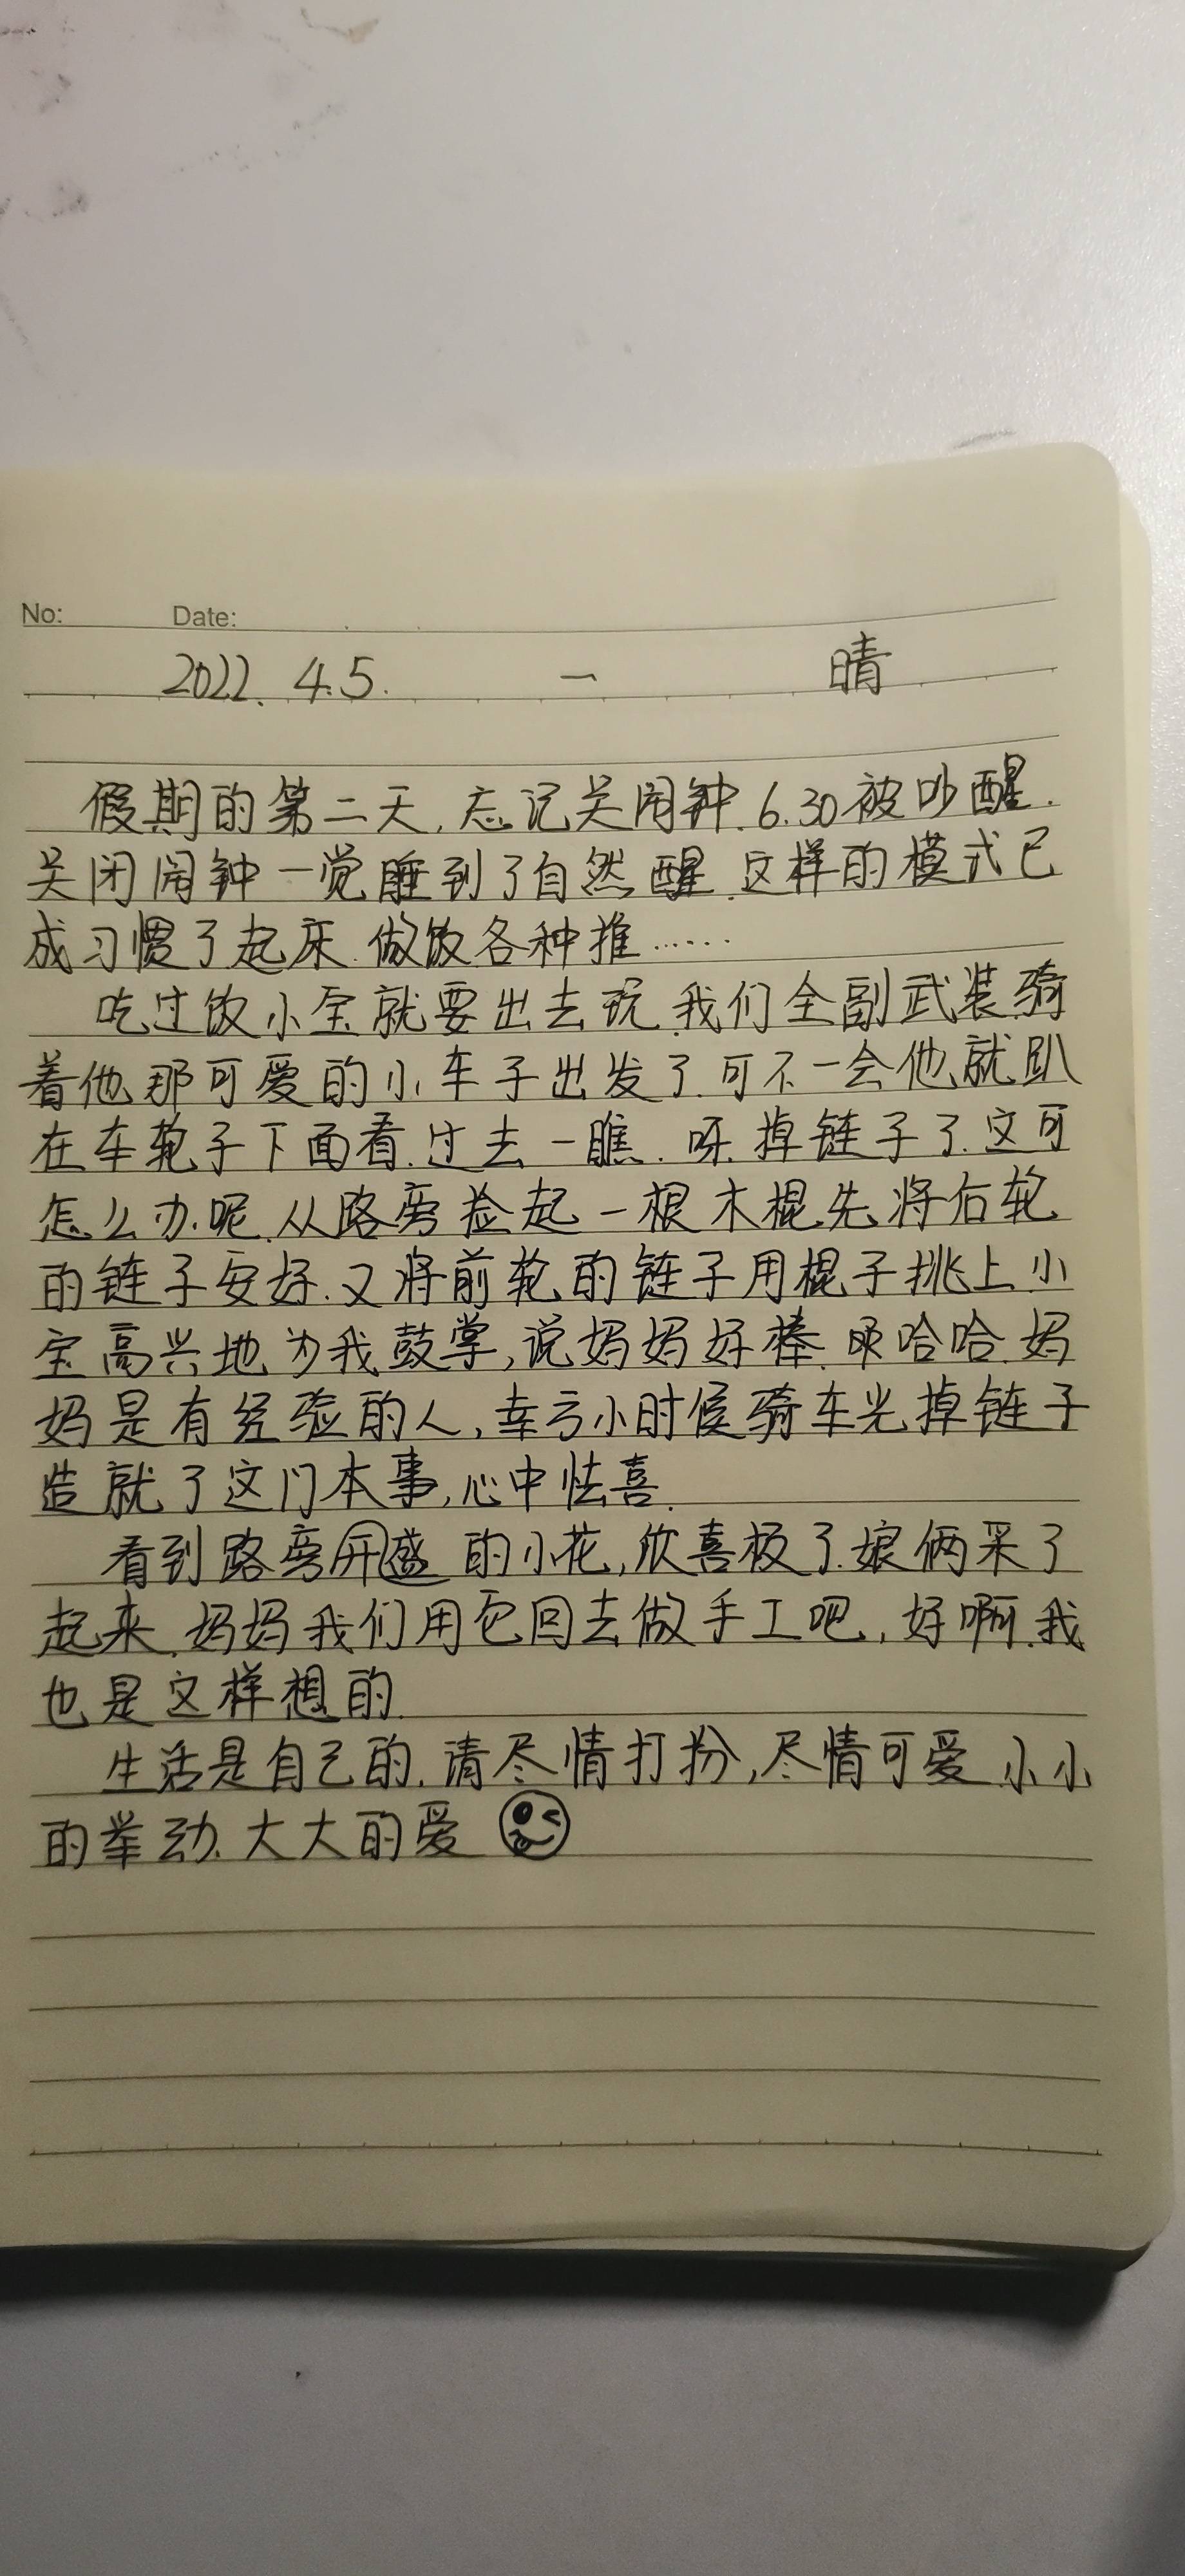 No: Date:
2022. 4.5. 一 晴
假期的第二天,忘记关闹钟.6.30被吵醒.
关闭闹钟一觉睡到了自然醒.这样的模式已
成习惯了起床.做饭各种推……
吃过饭小宝就要出去玩.我们全副武装骑
着他那可爱的小车子出发了.可不一会他就趴
在车轮子下面看.过去一瞧.呀.掉链子了.这可
怎么办.呢.从路旁捡起一根木棍先将右轮
的链子安好.又将前轮的链子用棍子挑上.小
宝高兴地为我鼓掌,说妈妈好棒.哈哈.妈
妈是有经验的人,幸亏小时候骑车光掉链子
造就了这门本事,心中怯喜.
看到路旁开盛的小花,欣喜极了.娘俩采了
起来.妈妈我们用它回去做手工吧,好啊.我
也是这样想的.
生活是自己的.请尽情打扮,尽情可爱.小小
的举动.大大的爱